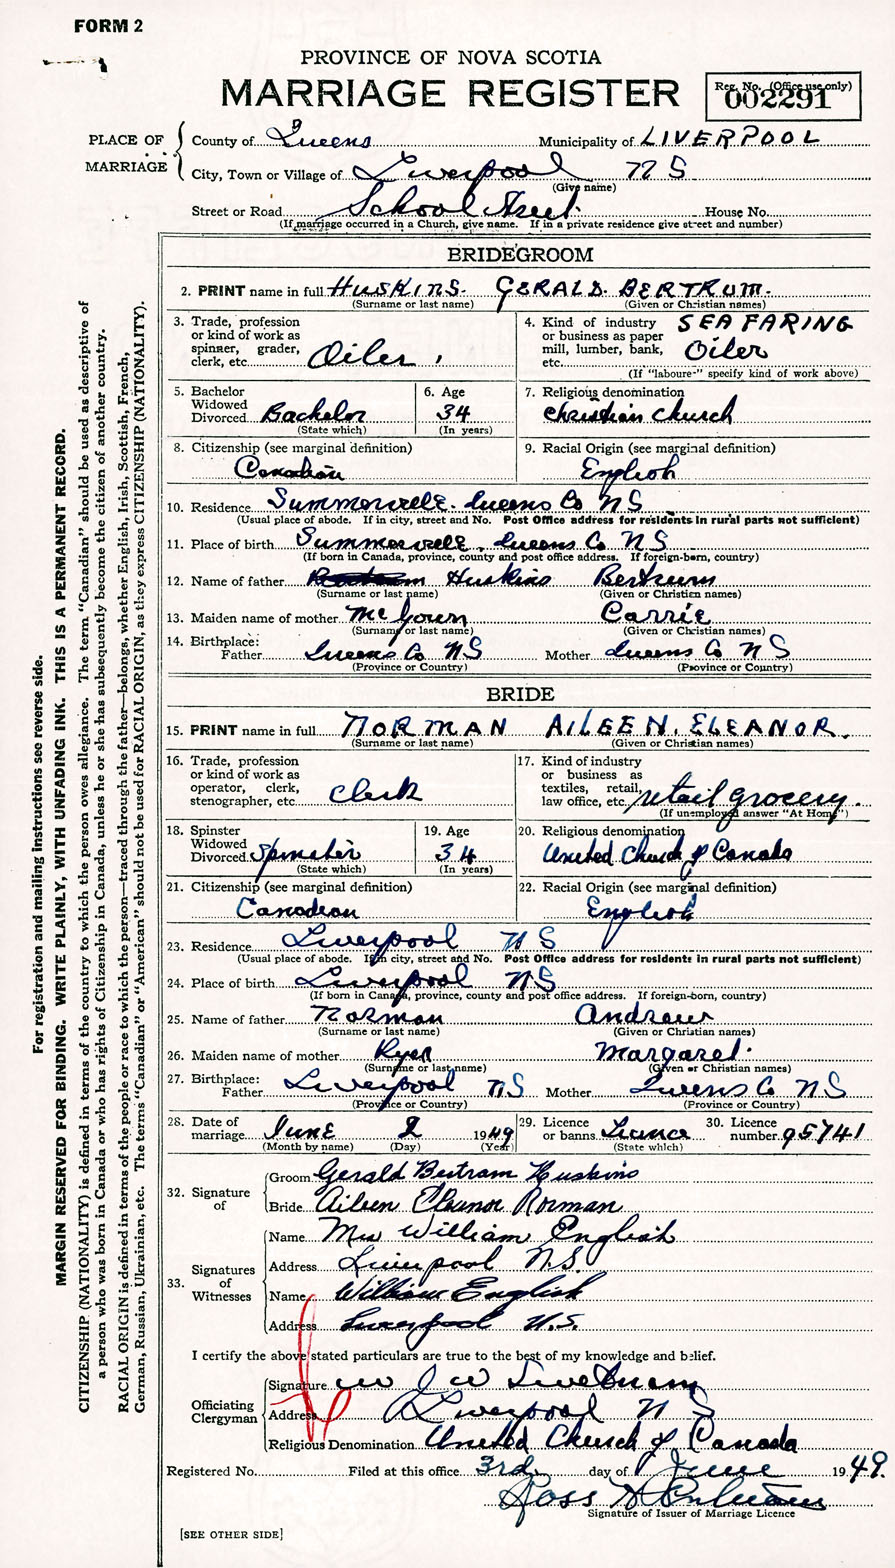 FORM 2
PROVINCE OF NOVA SCOTIA
MARRIAGE REGISTER
Reg. No. (Office use only)
002291
PLACE OF MARRIAGE
County of Queens Municipality of LIVERPOOL
City, Town or Village of Liverpool N S
(Give name)
Street or Road School Street. House No.
(If marriage occurred in a Church, give name. If in a private residence give street and number)
BRIDEGROOM
2. PRINT name in full HUSKINS. GERALD BERTRUM.
(Surname or last name) (Given or Christian names)
3. Trade, profession or kind of work as spinner, grader, clerk, etc. Oiler
4. Kind of industry or business as paper mill, lumber, bank, etc. SEAFARING Oiler
(If "laboure-" specify kind of work above)
5. Bachelor Widowed Divorced Bachelor
(State which)
6. Age 34
(In years)
7. Religious denomination
Christian Church
8. Citizenship (see marginal definition)
Canadian
9. Racial Origin (see marginal definition)
English
10. Residence Summerville. Queens Co NS
(Usual place of abode. If in city, street and No. Post Office address for residents in rural parts not sufficient)
11. Place of birth Summerville. Queens Co NS
(If born in Canada, province, county and post office address. If foreign-born, country)
12. Name of father Huskins Bertrum
(Surname or last name) (Given or Christian names)
13. Maiden name of mother McGown Carrie
(Surname or last name) (Given or Christian names)
14. Birthplace:
Father Queens Co NS Mother Queens Co NS
(Province or Country) (Province or Country)
BRIDE
15. PRINT name in full NORMAN AILEEN. ELEANOR.
(Surname or last name) (Given or Christian names)
16. Trade, profession or kind of work as operator, clerk, stenographer, etc. Clerk
17. Kind of industry or business as textiles, retail, law office, etc. retail grocery.
(If unemployed answer "At Home")
18. Spinster Widowed Divorced Spinster
(State which)
19. Age 34
(In years)
20. Religious denomination
United Church of Canada
21. Citizenship (see marginal definition)
Canadian
22. Racial Origin (see marginal definition)
English
23. Residence Liverpool N S
(Usual place of abode. If in city, street and No. Post Office address for residents in rural parts not sufficient)
24. Place of birth Liverpool NS
(If born in Canada, province, county and post office address. If foreign-born, country)
25. Name of father Norman Andrew
(Surname or last name) (Given or Christian names)
26. Maiden name of mother Ryer Margaret.
(Surname or last name) (Given or Christian names)
27. Birthplace:
Father Liverpool NS Mother Queens Co NS
(Province or Country) (Province or Country)
28. Date of marriage June 2 1949
(Month by name) (Day) (Year)
29. Licence or banns Licence
(State which)
30. Licence number 95741
32. Signature of
Groom Gerald Bertram Huskins
Bride Aileen Eleanor Norman
33. Signatures of Witnesses
Name Mrs William English
Address Liverpool N.S.
Name William English
Address Liverpool N.S.
I certify the above stated particulars are true to the best of my knowledge and belief.
Officiating Clergyman
Signature W J W
Address Liverpool N S
Religious Denomination United Church of Canada
Registered No. Filed at this office 3rd day of June 1949.
Ross
Signature of Issuer of Marriage Licence
[SEE OTHER SIDE]
For registration and mailing instructions see reverse side.
MARGIN RESERVED FOR BINDING. WRITE PLAINLY, WITH UNFADING INK. THIS IS A PERMANENT RECORD.
CITIZENSHIP (NATIONALITY) is defined in terms of the country to which the person owes allegiance. The term "Canadian" should be used as descriptive of
a person who was born in Canada or who has rights of Citizenship in Canada, unless he or she has subsequently become the citizen of another country.
RACIAL ORIGIN is defined in terms of the people or race to which the person—traced through the father—belongs, whether English, Irish, Scottish, French,
German, Russian, Ukrainian, etc. The terms "Canadian" or "American" should not be used for RACIAL ORIGIN, as they express CITIZENSHIP (NATIONALITY).